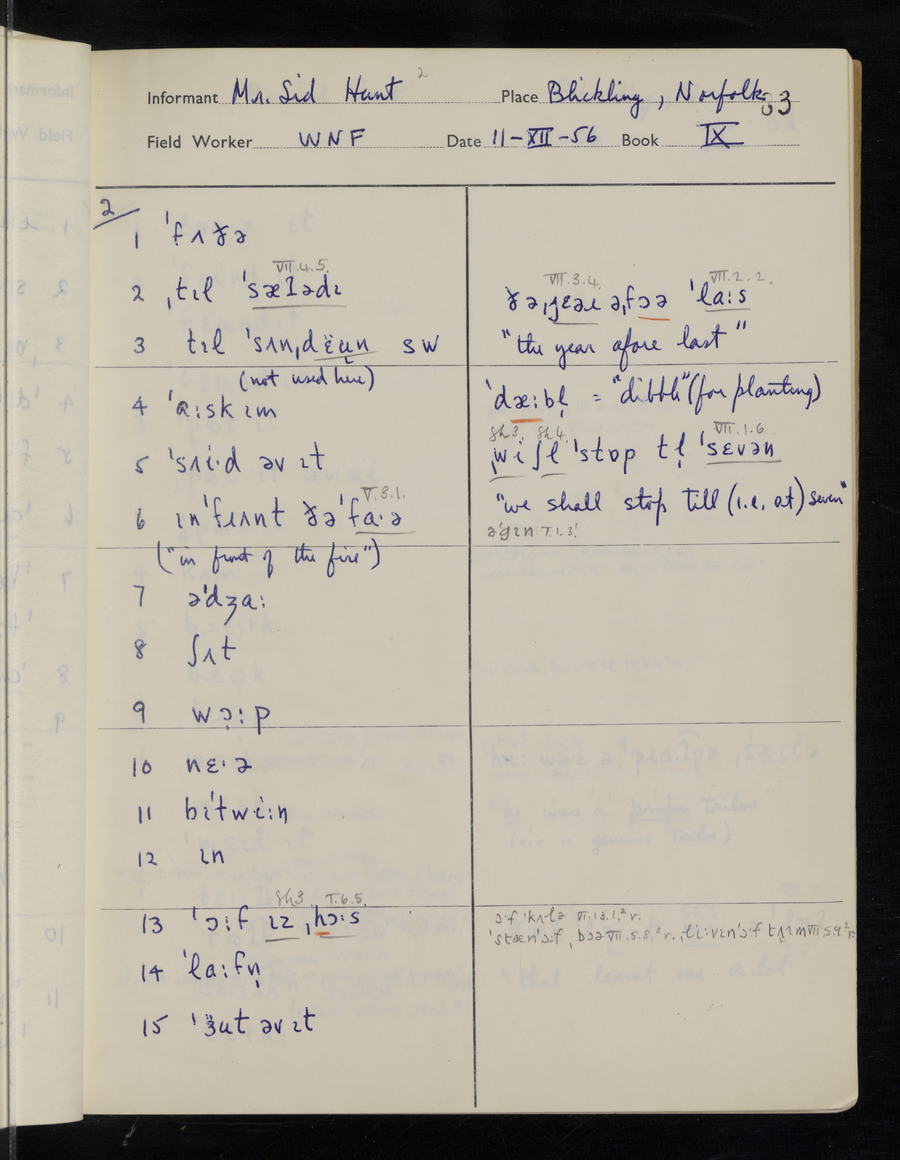 Informant Mr. Sid Hunt 2 Place Blickling, Norfolk 63
Field Worker WNF Date 11-XII-56 Book IX
2
1 ˈfʌðə
VII.4.5.
2 ˌtɪl ˈsæɪədɪ
3 tɪl ˈsʌnˌdëʉn sw
(not used here)
4 ˈaːsk ɪm
5 ˈsʌi·d əv ɪt
V.3.1.
6 ɪnˈfɹʌnt ðəˈfa·ə
("in front of the fire")
7 əˈdʒaː
8 ʃʌt
9 wɔ̣ːp
10 nɛ·ə
11 biˈtwiːn
12 ɪn
Sh3 T.6.5.
13 ˈɔːf ɪz ˌhɔːs
14 ˈlaːfn̩
15 ˈɜ̈ut əv ɪt
VII.3.4. VII.2.2.
ðəˌjɛəɹ əˌfɔə ˈlaːs
"the year afore last"
ˈdæːbl̩ = "dibble" (for planting)
Sh3. Sh4. VII.1.6.
ˌwi ʃl ˈstɒp tl̩ ˈsɛvən
"we shall stop till (i.e. at) seven"
əˈgɪn T.1.3.
ɔ·f ˈkʌlə VI.13.1.²r.
ˈstænˈɔːf, bɔə VII.5.8.²r. ˌliːvɪnˈɔːf tʌɪm VII 5.9²r.